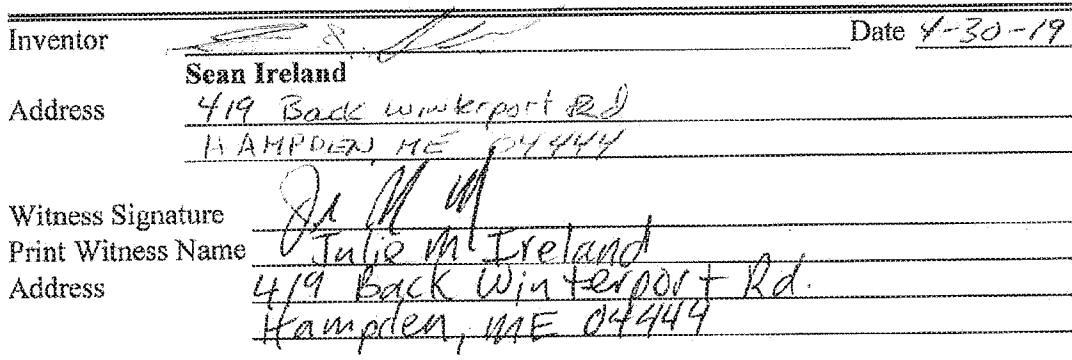 Inventor Date 4-30-19
Sean Ireland
Address 419 Back Winterport Rd
HAMPDEN, ME 04444
Witness Signature
Print Witness Name Julie M Ireland
Address 419 Back Winterport Rd.
Hampden, ME 04444